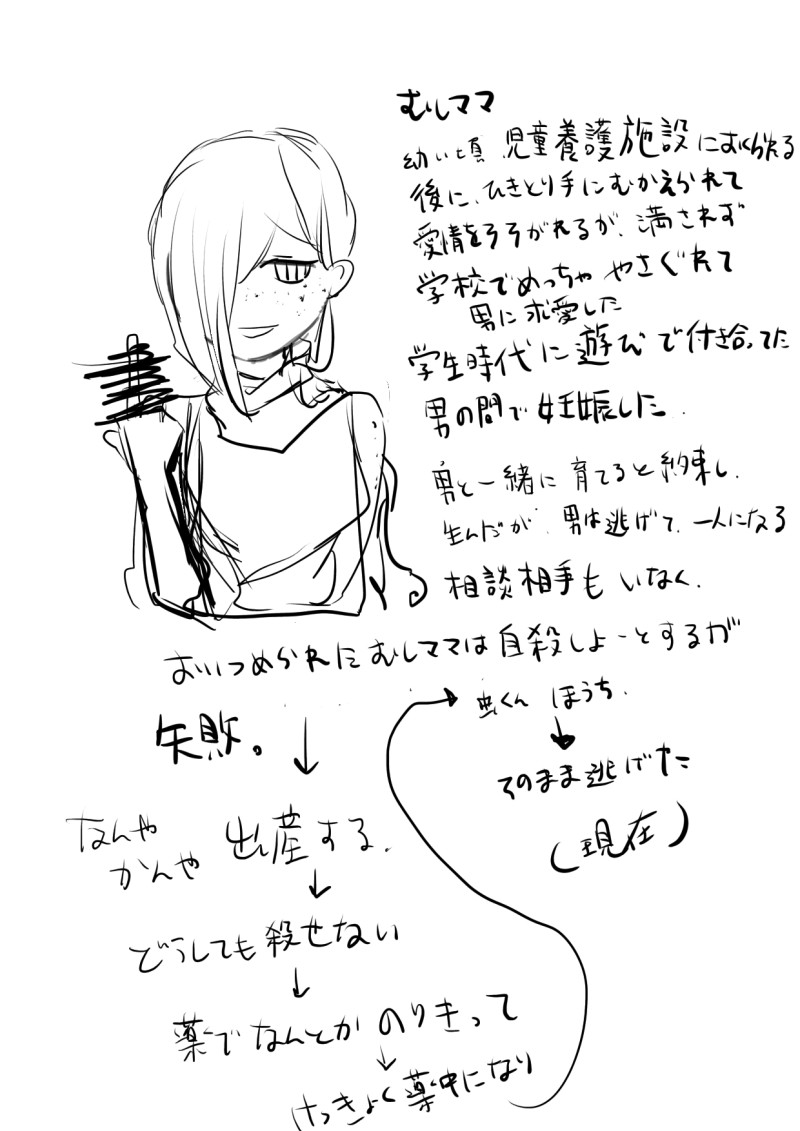 むしママ
幼い頃 児童養護施設にあずけられる
後に、ひきとり手にむかえられて
愛情をそそがれるが、満されず
学校でめっちゃ やさぐれて
男に求愛した
学生時代に遊びで付き合ってた
男の間で妊娠した.
男と一緒に育てると約束し、
生んだが、男は逃げて、一人になる
相談相手もいなく、
おいつめられたむしママは自殺しよーとするが
失敗。↓
なんや
かんや 出産する.
↓
どうしても殺せない
↓
薬でなんとか のりきって
↓
けっきょく薬中になり
→ 虫くん ほうち.
↓
そのまま逃げた
(現在)